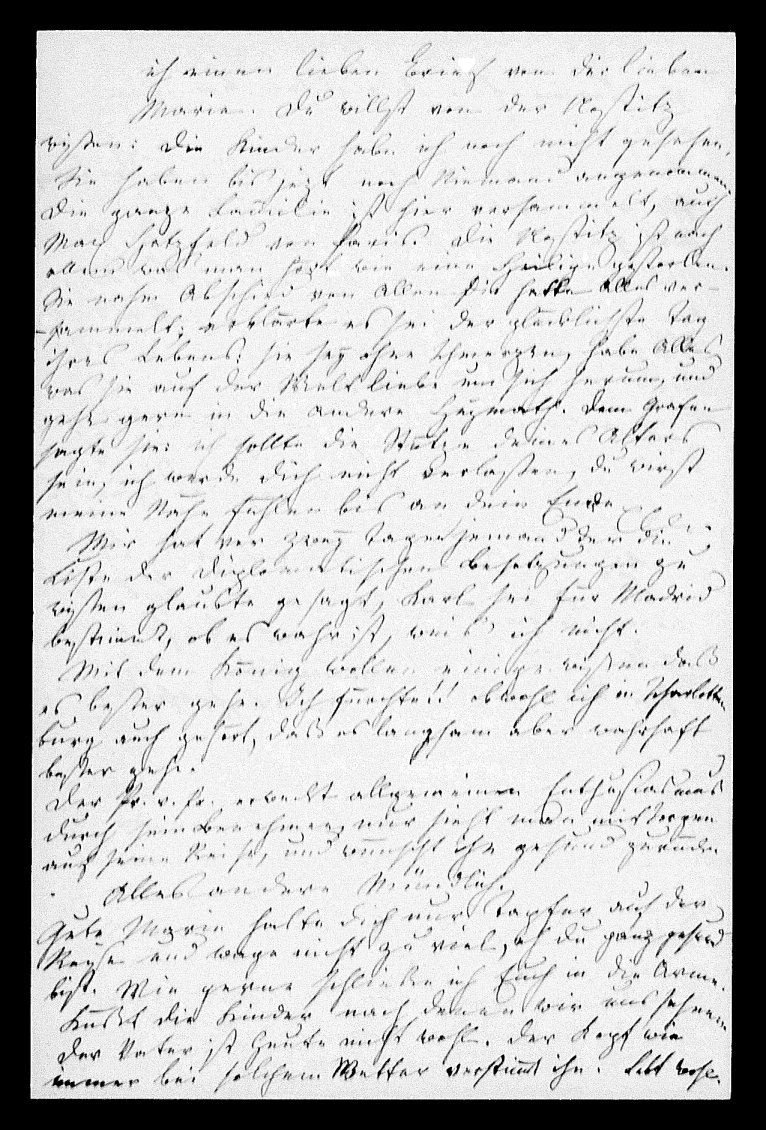 ich einen lieben Brief von der lieben
Marie. Du willst von der Nostitz
wißen: Die Kinder habe ich noch nicht gesehen,
Sie haben bis jezt noch Niemand angenommen,
die ganze Familie ist hier versammelt, auch
Max Hatzfeld von Paris. Die Nostitz ist nach
allem was man hört wie eine Heilige gestorben.
Sie nahm Abschied von Allen die hatte Alles ver-
-sammelt; erklärte es sei der glücklichste Tag
ihres Lebens; sie sey ohne Schmerzen, habe Alles
was sie auf der Welt liebe um sich herum, und
gehe gern in die andere Heymath. Dem Grafen
sagte sie: ich sollte die Stütze deines Alters
sein, ich werde dich nicht verlaßen, du wirst
meine Nähe fühlen bis an dein Ende
Mir hat vor zwey Tagen jemand der die
Liste der diplomatischen Besetzungen zu
wißen glaubte gesagt, Carl sei für Madrid
bestimmt, ob es wahr ist, weis ich nicht.
Mit dem König wollen einige wißen daß
es beßer gehe. Ich fürchte!! obwohl ich in Scharlotten
burg auch gehört, daß es langsam aber wahrhaft
beßer gehe.
Der Pr. v. Pr. erweckt allgemeinen Enthusiasmus
durch sein Benehmen, nur sieht man mit Sorgen
auf seine Reise, und wünscht ihn gesund zurück
Alles andere Mündlich.
Gute Marie halte dich nur Tapfer auf der
Reyse und wage nicht zu viel, eh du ganz gesund
bist. Wie gerne schließe ich Euch in die Arme.
Küßt die Kinder nach denen wir uns sehnen
Der Vater ist heute nicht wohl. Der Kopf wie
immer bei solchem Wetter verstimmt ihn. Lebt wohl.